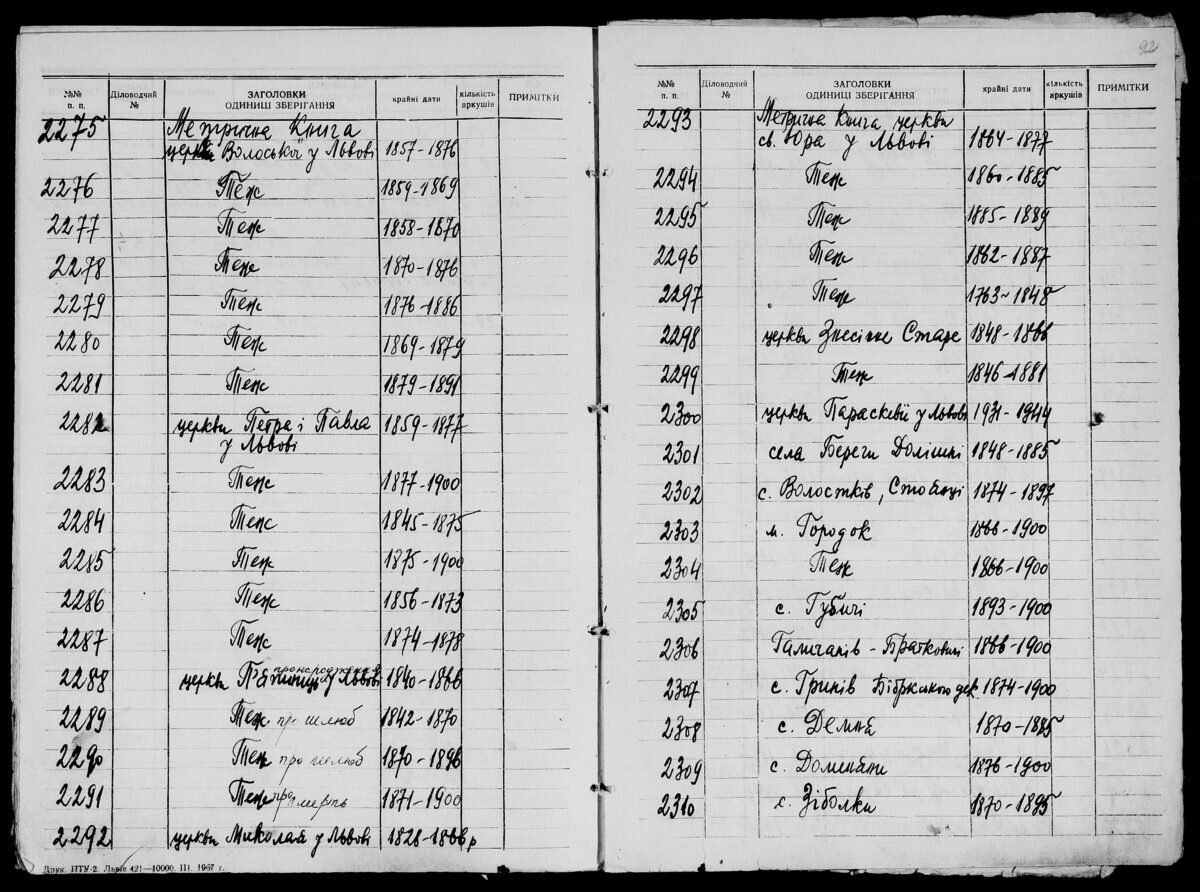 №№ п. п. Діловодчий № ЗАГОЛОВКИ ОДИНИЦІ ЗБЕРІГАННЯ крайні дати кількість аркушів ПРИМІТКИ
2275 Метрична Книга
церкви Волоської у Львові 1857-1876
2276 Теж 1859-1869
2277 Теж 1858-1870
2278 Теж 1870-1876
2279 Теж 1876-1886
2280 Теж 1869-1879
2281 Теж 1879-1891
2282 церкви Петра і Павла 1859-1877
у Львові
2283 Теж 1877-1900
2284 Теж 1845-1875
2285 Теж 1875-1900
2286 Теж 1856-1873
2287 Теж 1874-1878
про народження
2288 церкви П'ятниць у Львові 1840-1866
2289 Теж про шлюб 1842-1870
2290 Теж про шлюб 1870-1896
2291 Теж про смерть 1871-1900
2292 церкви Миколай у Львові 1828-1866 р
Друк. ПТУ-2. Львів 421—10000. III. 1967 г.
92
№№ п. п. Діловодчий № ЗАГОЛОВКИ ОДИНИЦІ ЗБЕРІГАННЯ крайні дати кількість аркушів ПРИМІТКИ
2293 Метрична Книга церкви
св. Юра у Львові 1864-1877
2294 Теж 1860-1885
2295 Теж 1885-1889
2296 Теж 1862-1887
2297 Теж 1763-1848
2298 церкви Знесіння Старе 1848-1866
2299 Теж 1846-1881
2300 церкви Параскевії у Львові 1931-1944
2301 села Береги Долішні 1848-1885
2302 с. Волостків, 1874-1897
2303 м. Городок 1866-1900
2304 Теж 1866-1900
2305 с. Губичі 1893-1900
2306 Галичанів - Братковичі 1866-1900
2307 с. Гринів Бібркського дек. 1874-1900
2308 с. Демня 1870-1885
2309 с. 1876-1900
2310 с. Зіболки 1870-1895